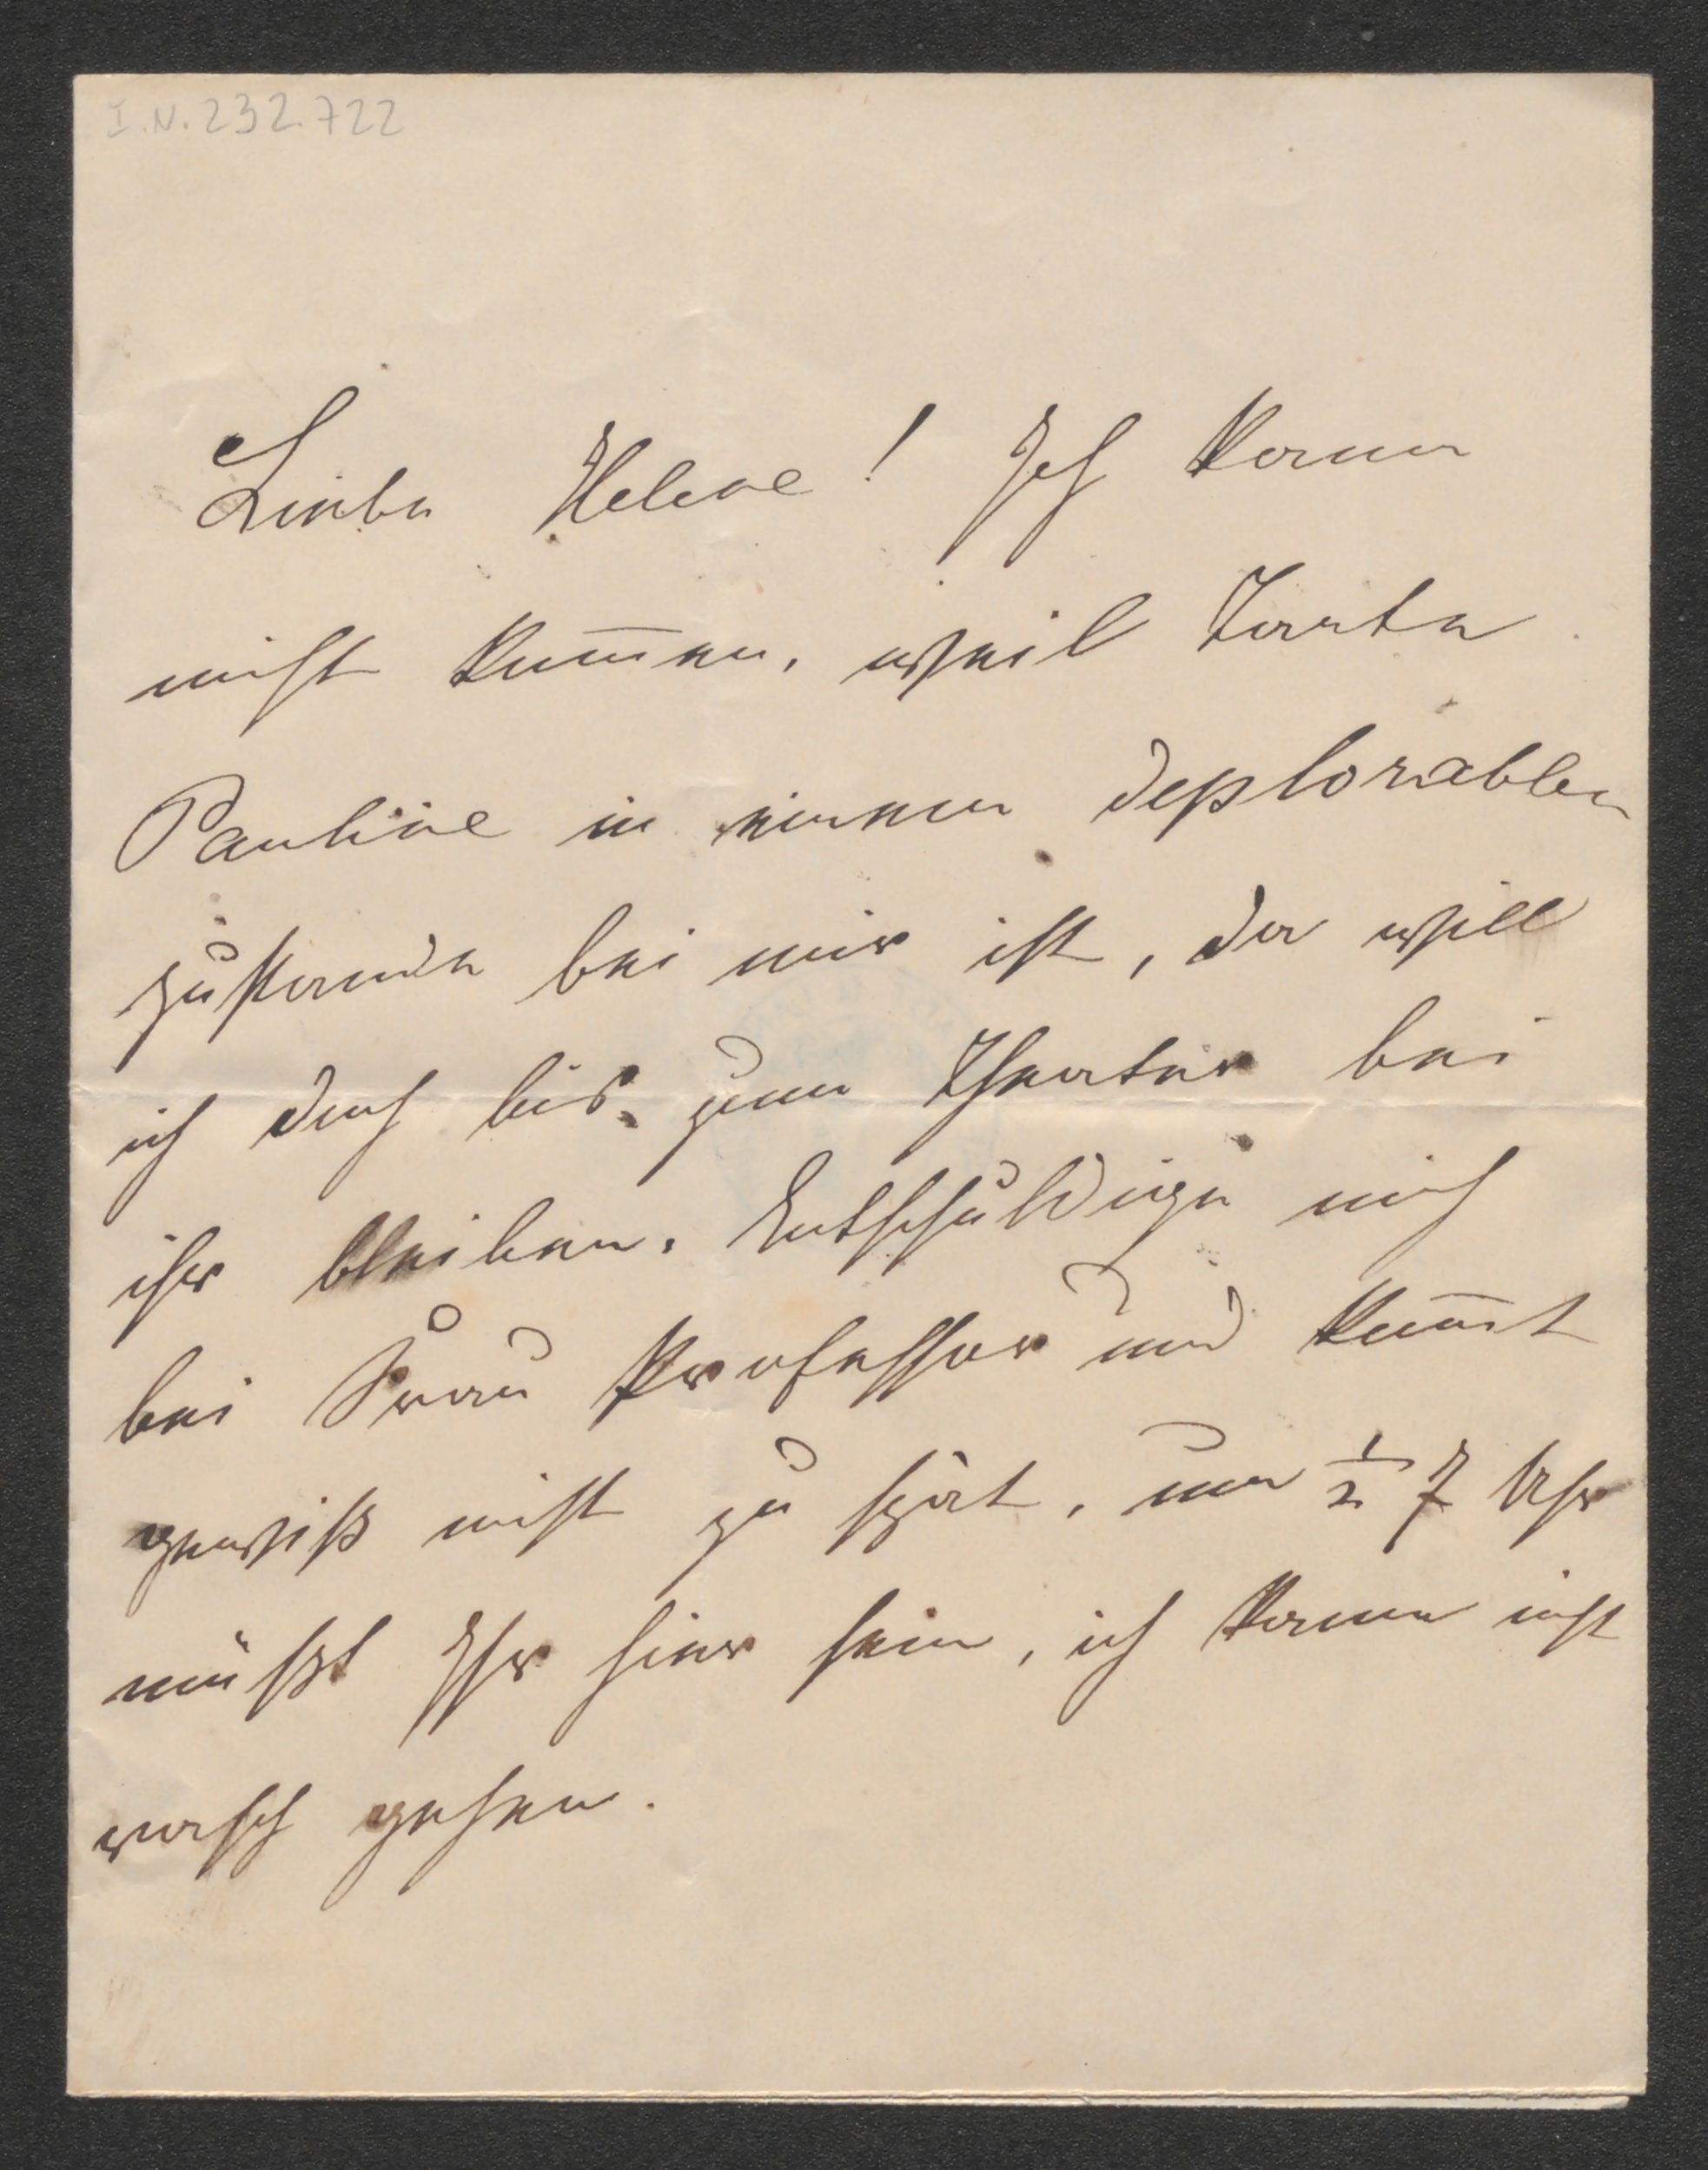 I.N. 232.722
Liebe Helene! Ich kann
nicht kom̅en, weil Tante
Pauline in einem deplorablen
Zustande bei mir ist, da will
ich doch bis zum Theater bei
ihr bleiben. Entschuldige mich
bei Frau Professor und kom̅t
gewiß nicht zu spät, um ½ 7 Uhr
müßt Ihr hier sein, ich kann nicht
rasch gehen.